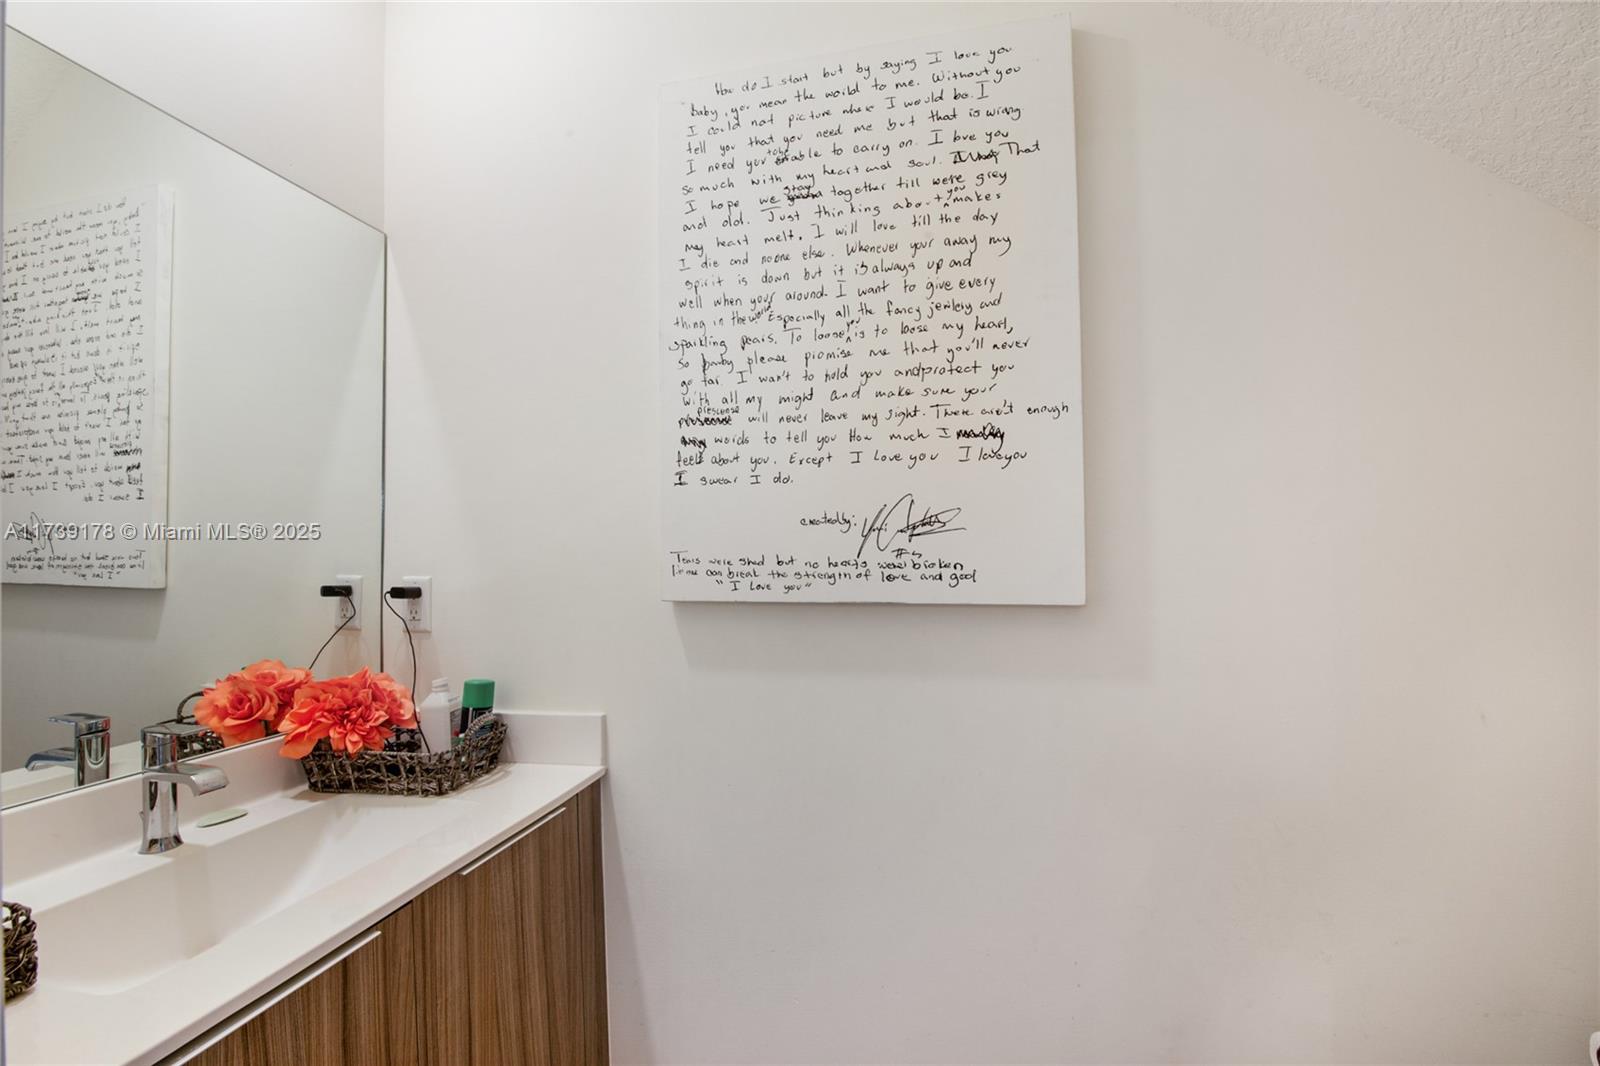 How do I start but by saying I love you
Baby, you mean the world to me. Without you
I could not picture where I would be. I
tell you that you need me but that is wrong
I need you to be able to carry on. I love you
so much with my heart and soul. That
I hope we stay together till were grey
and old. Just thinking about you makes
my heart melt. I will love till the day
I die and noone else. Whenever your away my
spirit is down but it is always up and
well when your around. I want to give every
thing in the world Especially all the fancy jewlery and
sparkling pears. To loose you is to loose my heart,
so baby please promise me that you'll never
go far. I wan't to hold you and protect you
with all my might and make sure your
prescense will never leave my sight. There aren't enough
words to tell you How much I
feel about you. Except I Love you I love you
I swear I do.
created by:
Tears were shed but no hearts were broken
can break the strength of love and god
"I Love you"
A11739178 © Miami MLS® 2025